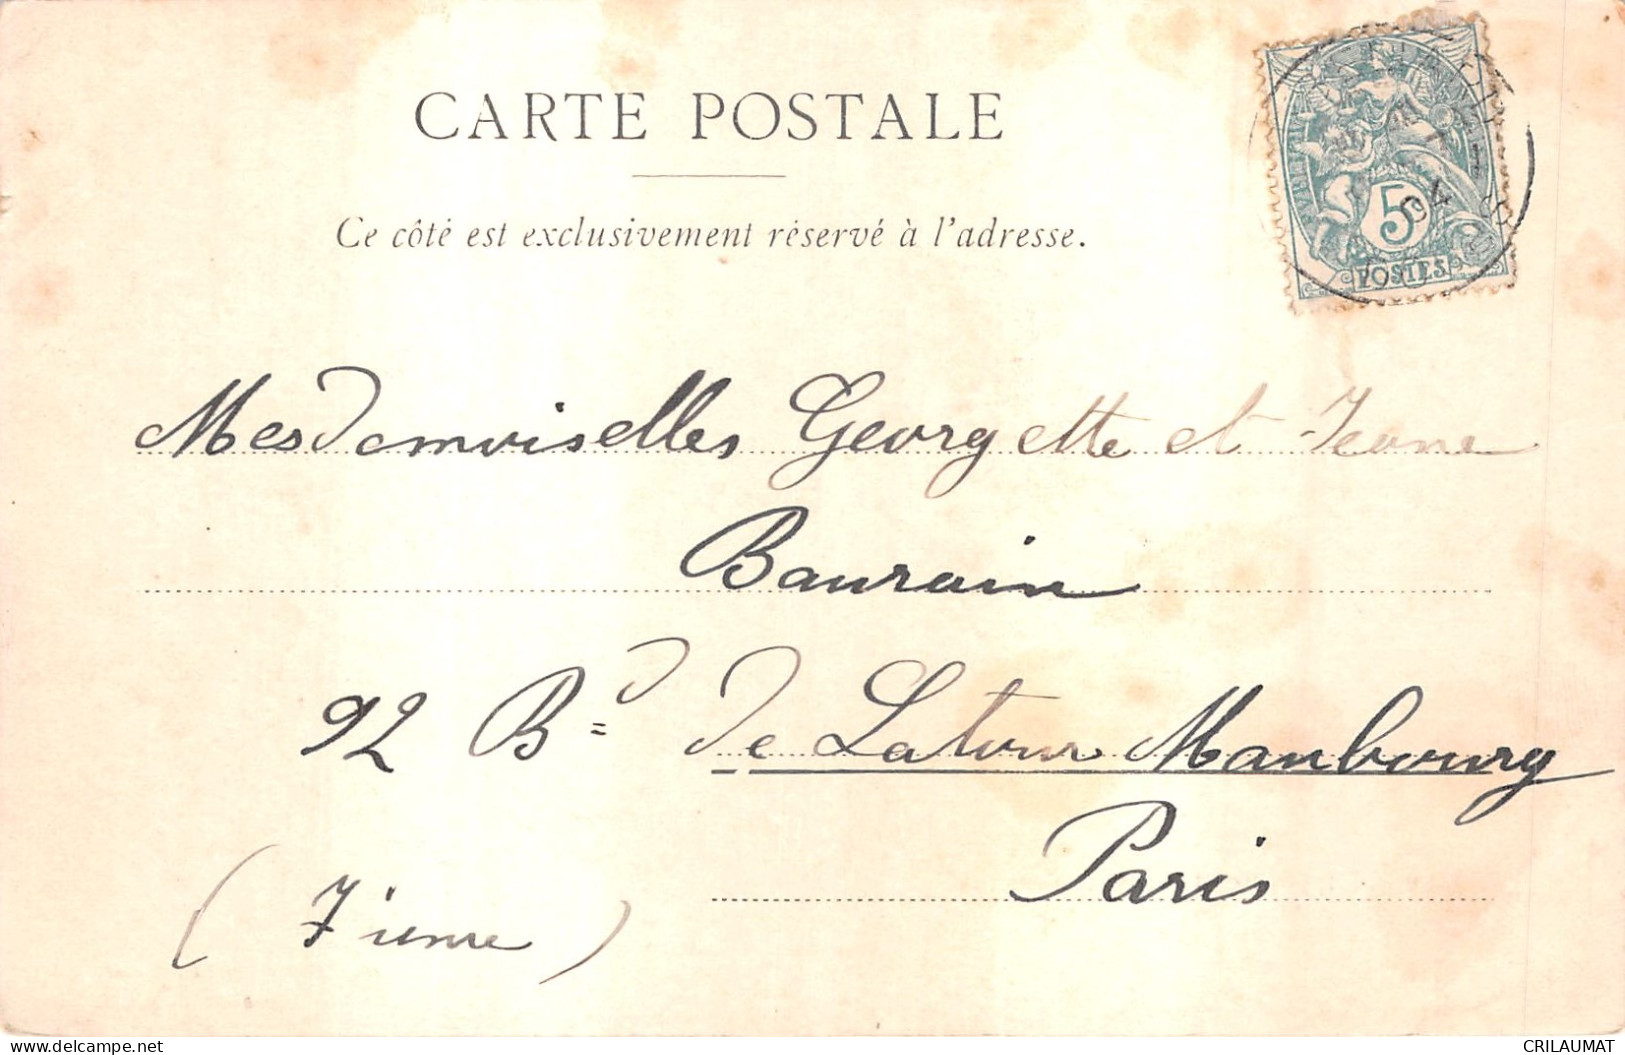 CARTE POSTALE
Ce côté est exclusivement réservé à l'adresse.
5
POSTES
04
Mesdemoiselles Georgette et Jeanne
Baurain
92 Bd de Latour Maubourg
Paris
( 7 ieme )
CRILAUMAT